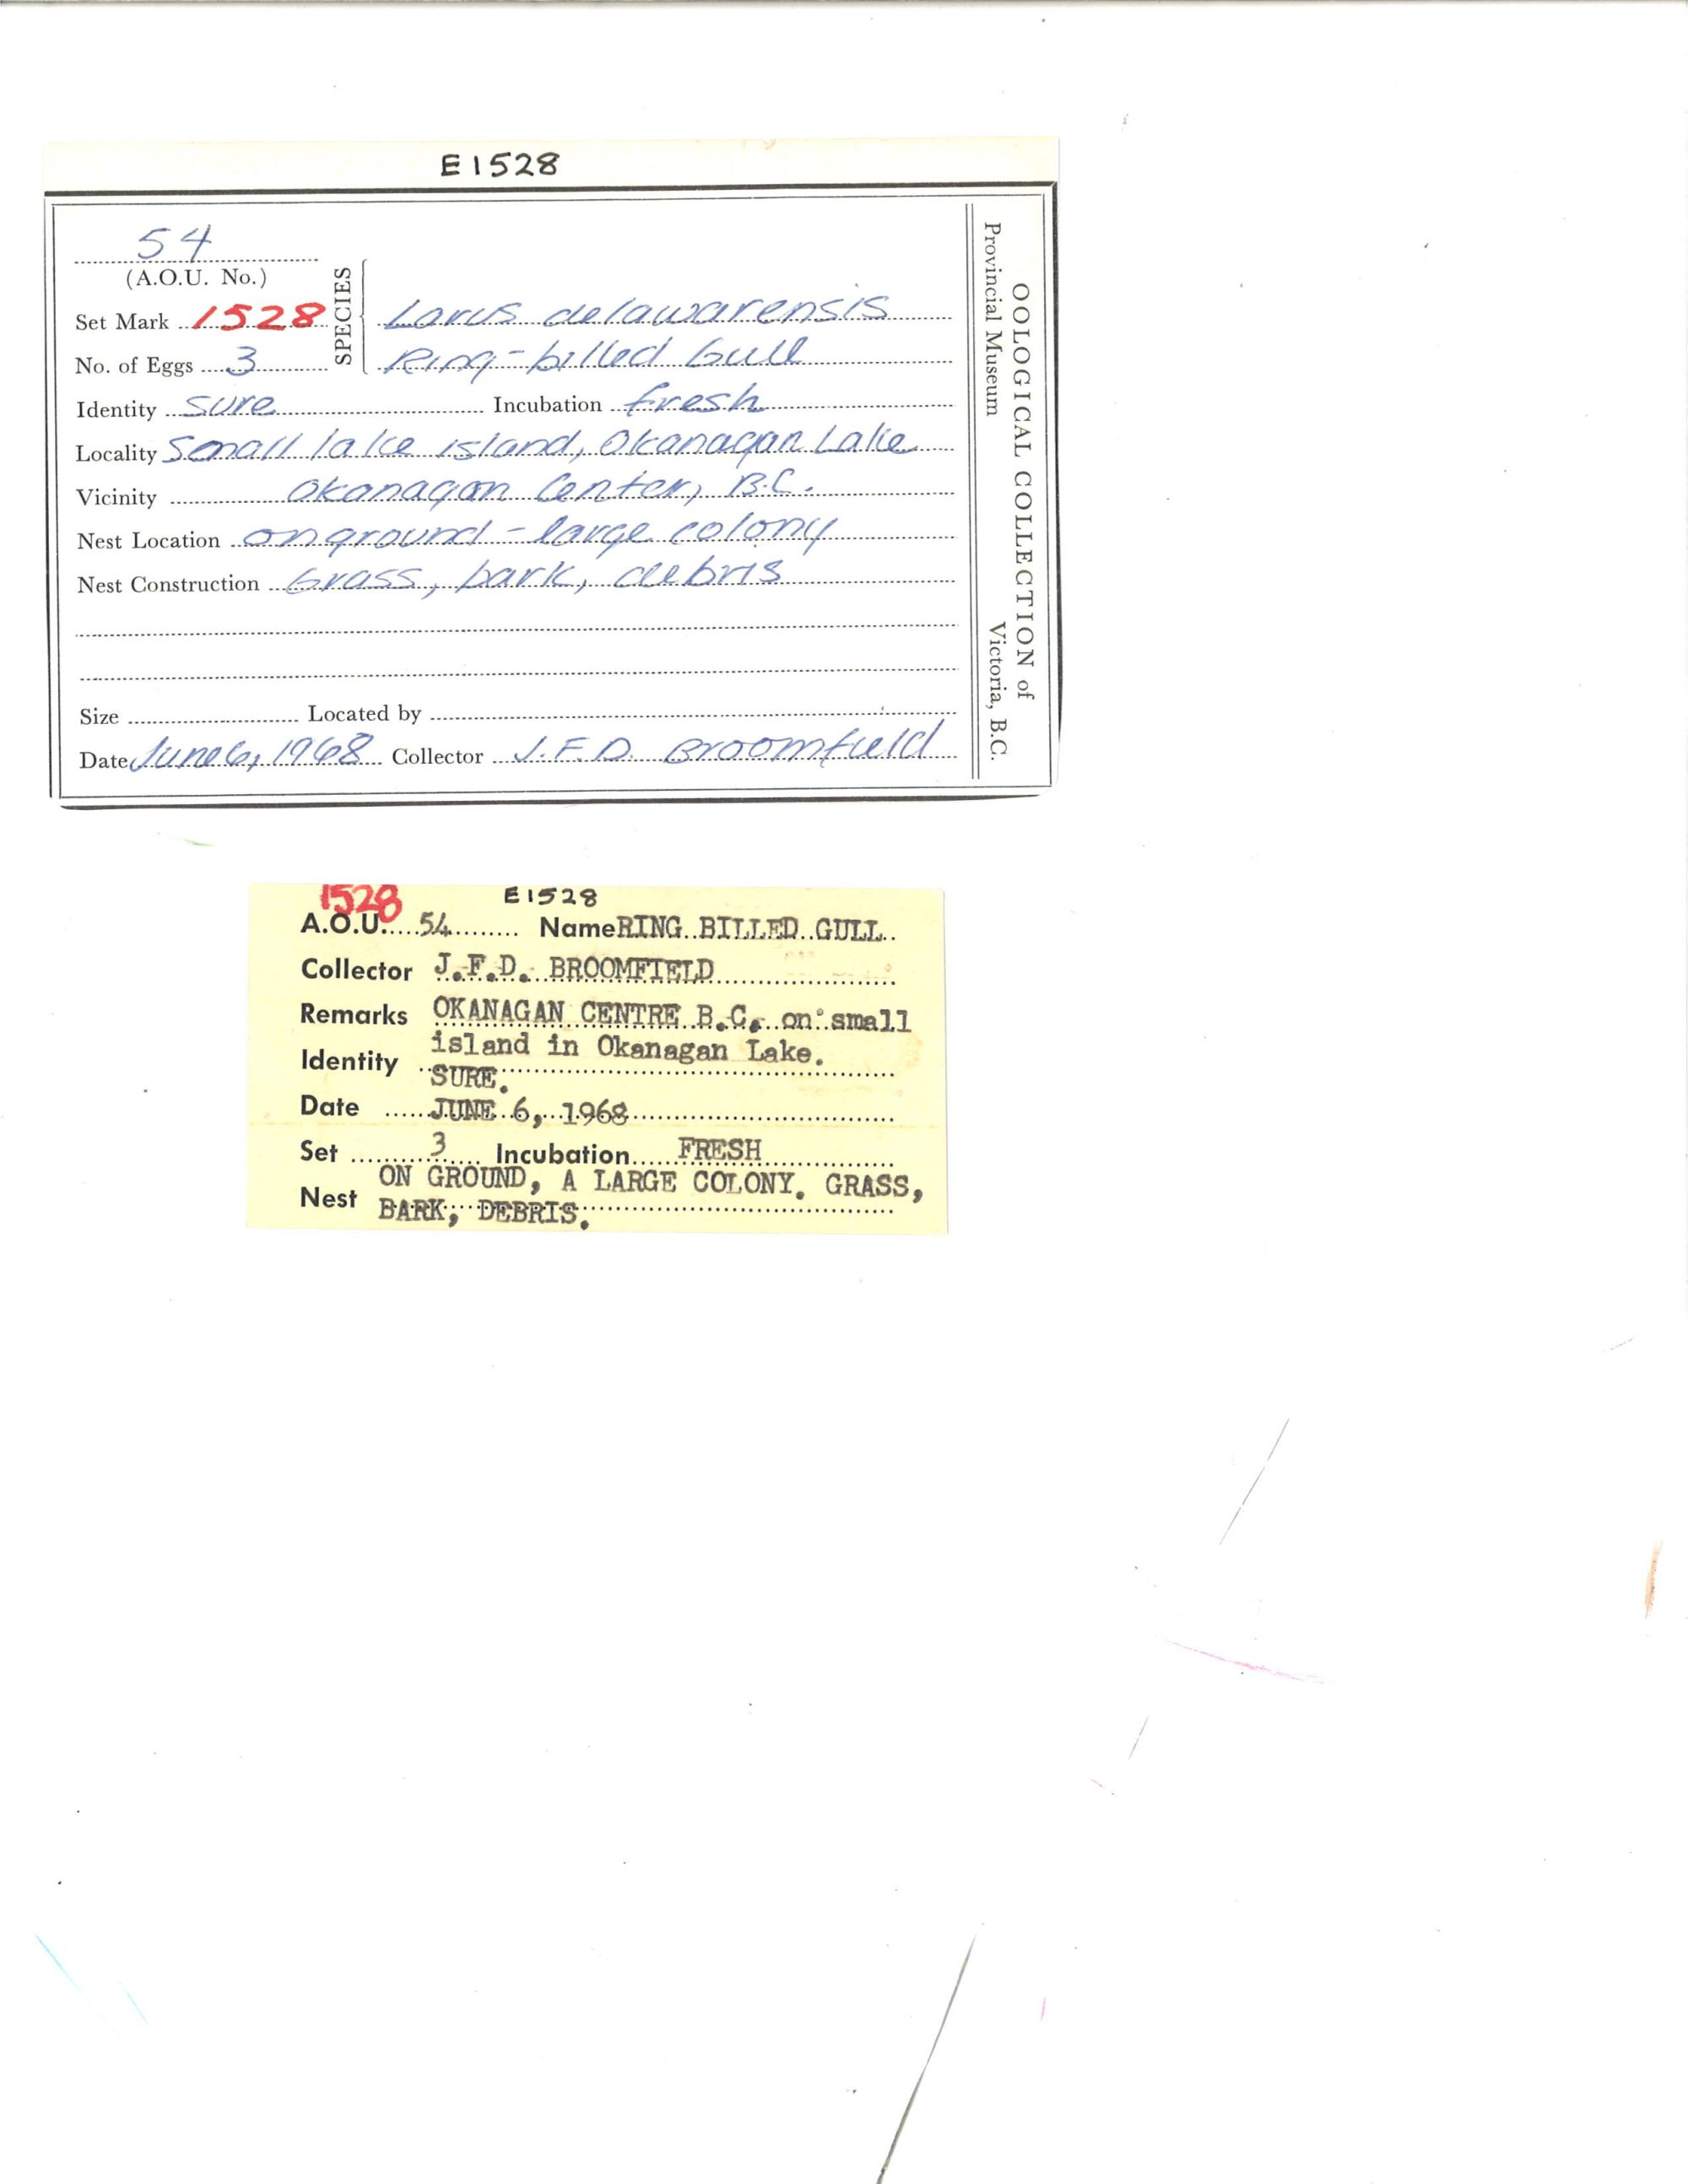 E1528
54
(A.O.U. No.)
Set Mark 1528
No. of Eggs 3
SPECIES
Larus delawarensis
Ring-billed Gull
Identity sure Incubation fresh
Locality Small lake island, Okanagan Lake
Vicinity Okanagan Center, B.C.
Nest Location on ground - large colony
Nest Construction Grass, bark, debris
Size Located by
Date June 6, 1968 Collector J.F.D. Broomfield
OOLOGICAL COLLECTION of
Provincial Museum Victoria, B.C.
1528 E1528
A.O.U. 54 Name RING BILLED GULL
Collector J.F.D. BROOMFIELD
Remarks OKANAGAN CENTRE B.C. on small
island in Okanagan Lake.
Identity SURE.
Date JUNE 6, 1968
Set 3 Incubation FRESH
Nest ON GROUND, A LARGE COLONY. GRASS,
BARK, DEBRIS.